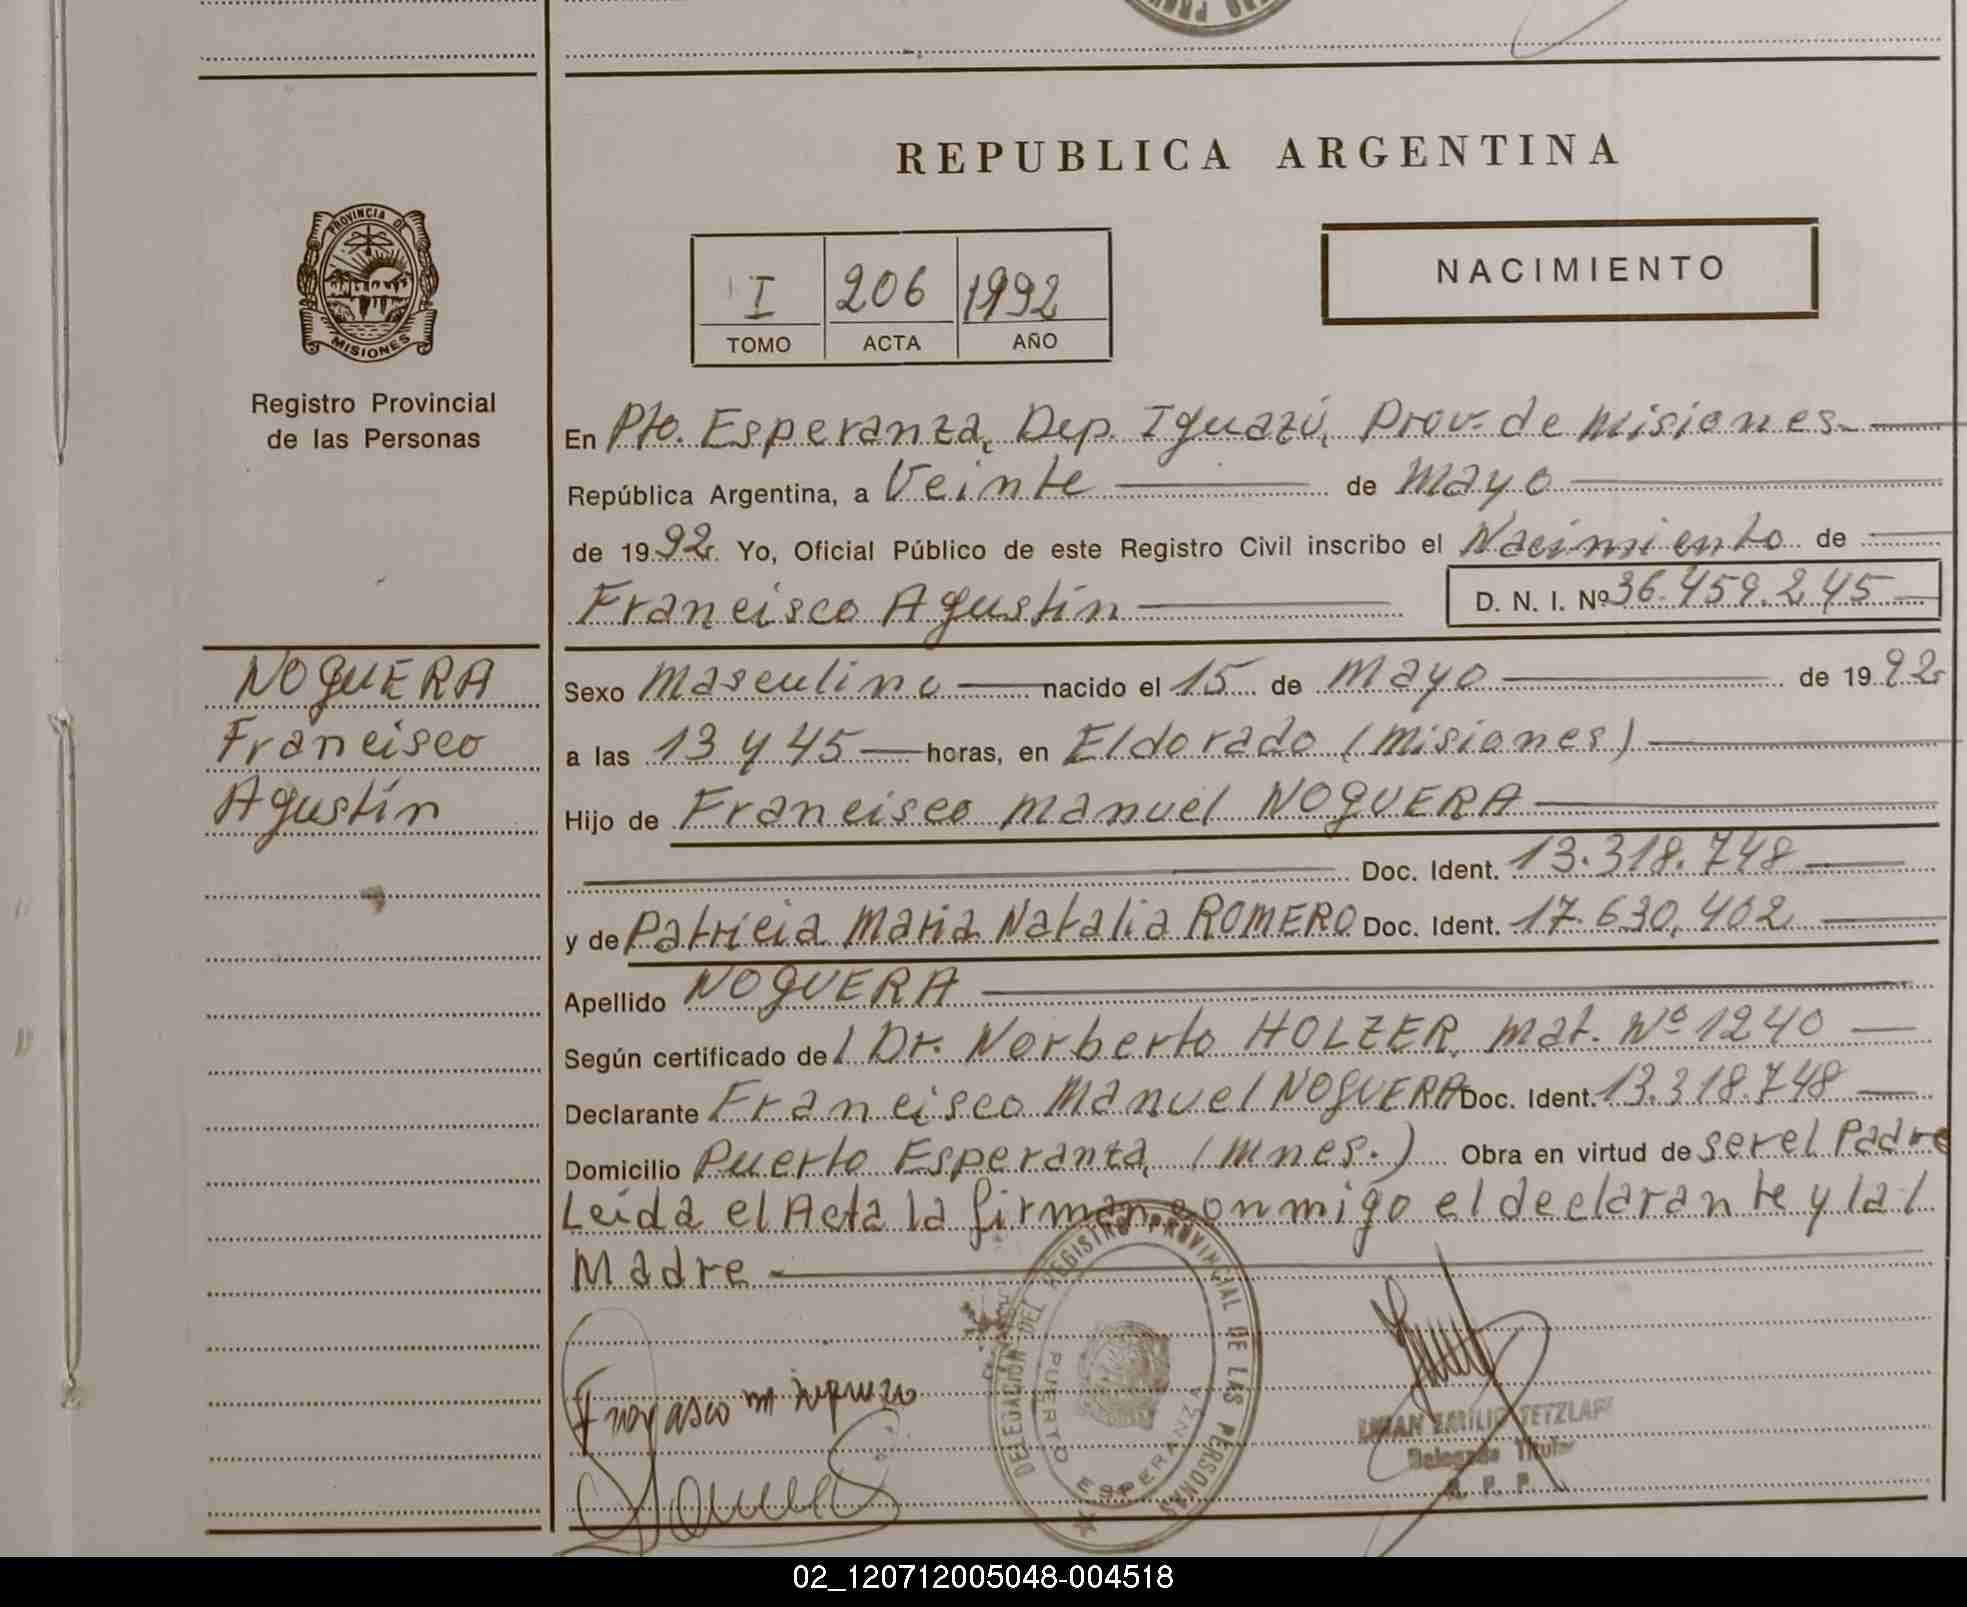 REPUBLICA ARGENTINA
PROVINCIA DE
MISIONES
Registro Provincial
de las Personas
I 206 1992
TOMO ACTA AÑO
NACIMIENTO
En Pto. Esperanza, Dep. Iguazú, Prov. de Misiones.
República Argentina, a Veinte de Mayo
de 1992. Yo, Oficial Público de este Registro Civil inscribo el Nacimiento de
Francisco Agustín D. N. I. Nº 36.459.245
NOGUERA
Francisco
Agustín
Sexo Masculino nacido el 15 de Mayo de 1992
a las 13 y 45 horas, en Eldorado (Misiones)
Hijo de Francisco Manuel NOGUERA
Doc. Ident. 13.318.748
y de Patricia Maria Natalia ROMERO Doc. Ident. 17.630.402
Apellido NOGUERA
Según certificado del Dr. Norberto HOLZER, Mat. Nº 1240
Declarante Francisco Manuel NOGUERA Doc. Ident. 13.318.748
Domicilio Puerto Esperanza, (Mnes.) Obra en virtud de ser el Padre
Leída el Acta la firman conmigo el declarante y la
Madre
DELEGACION DEL REGISTRO PROVINCIAL DE LAS PERSONAS
PUERTO ESPERANZA
EMILIO TETZLAFF
Delegado Titular
R. P. P.
02_120712005048-004518